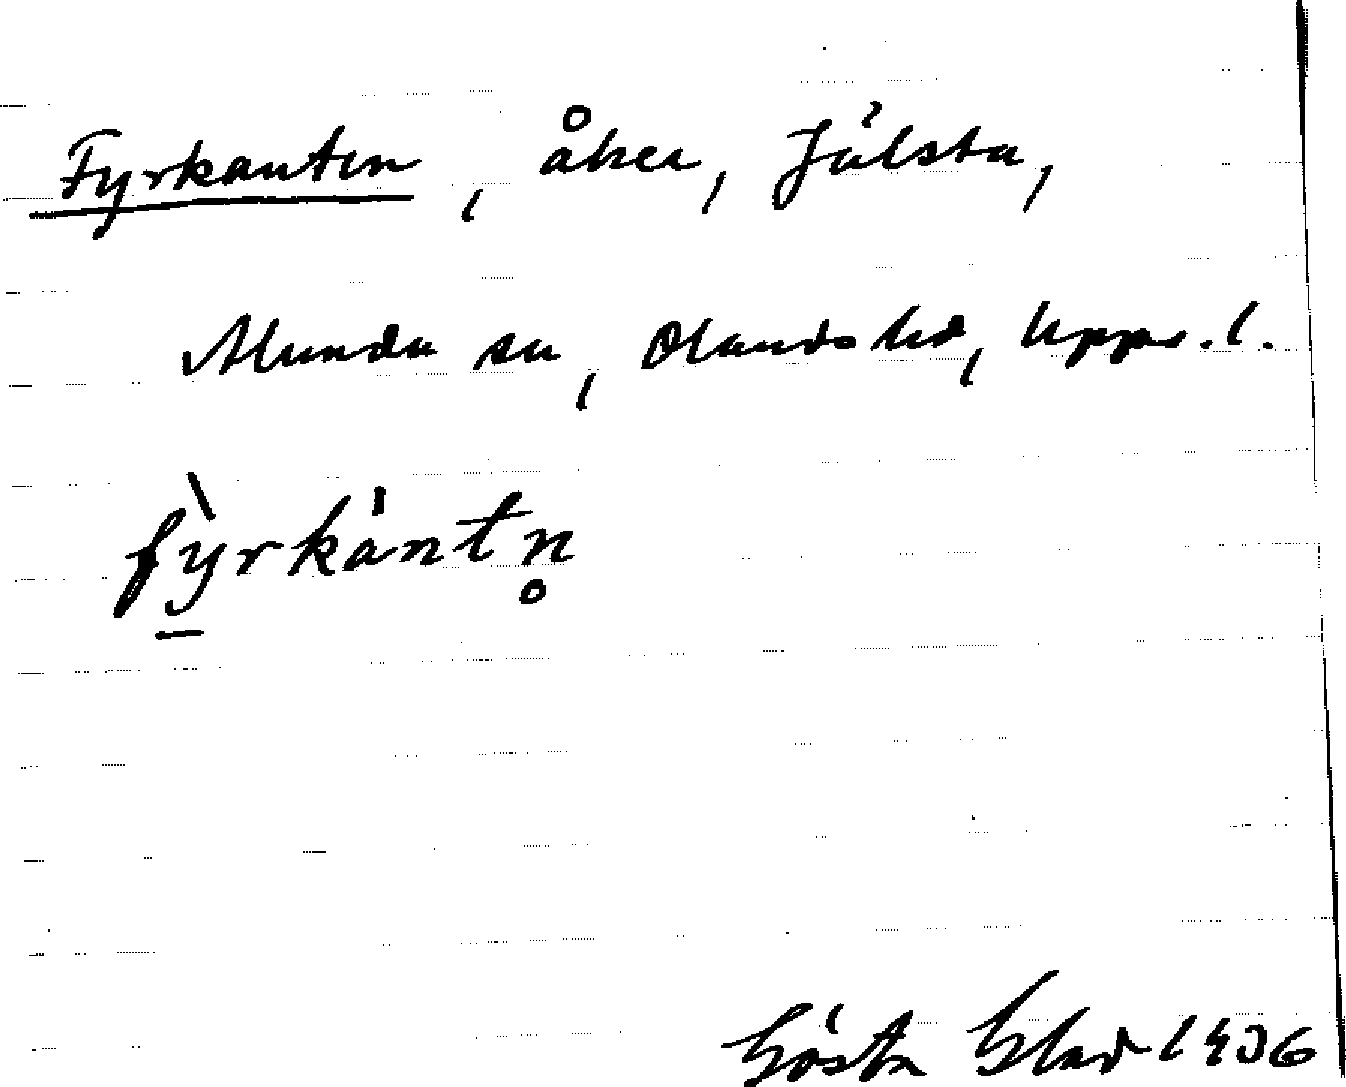 Fyrkanten, åker, Jälsta,
Munda sn, Olands hd, Upps. l.
fỳ̠rkántn̥
Gösta Blad 1936